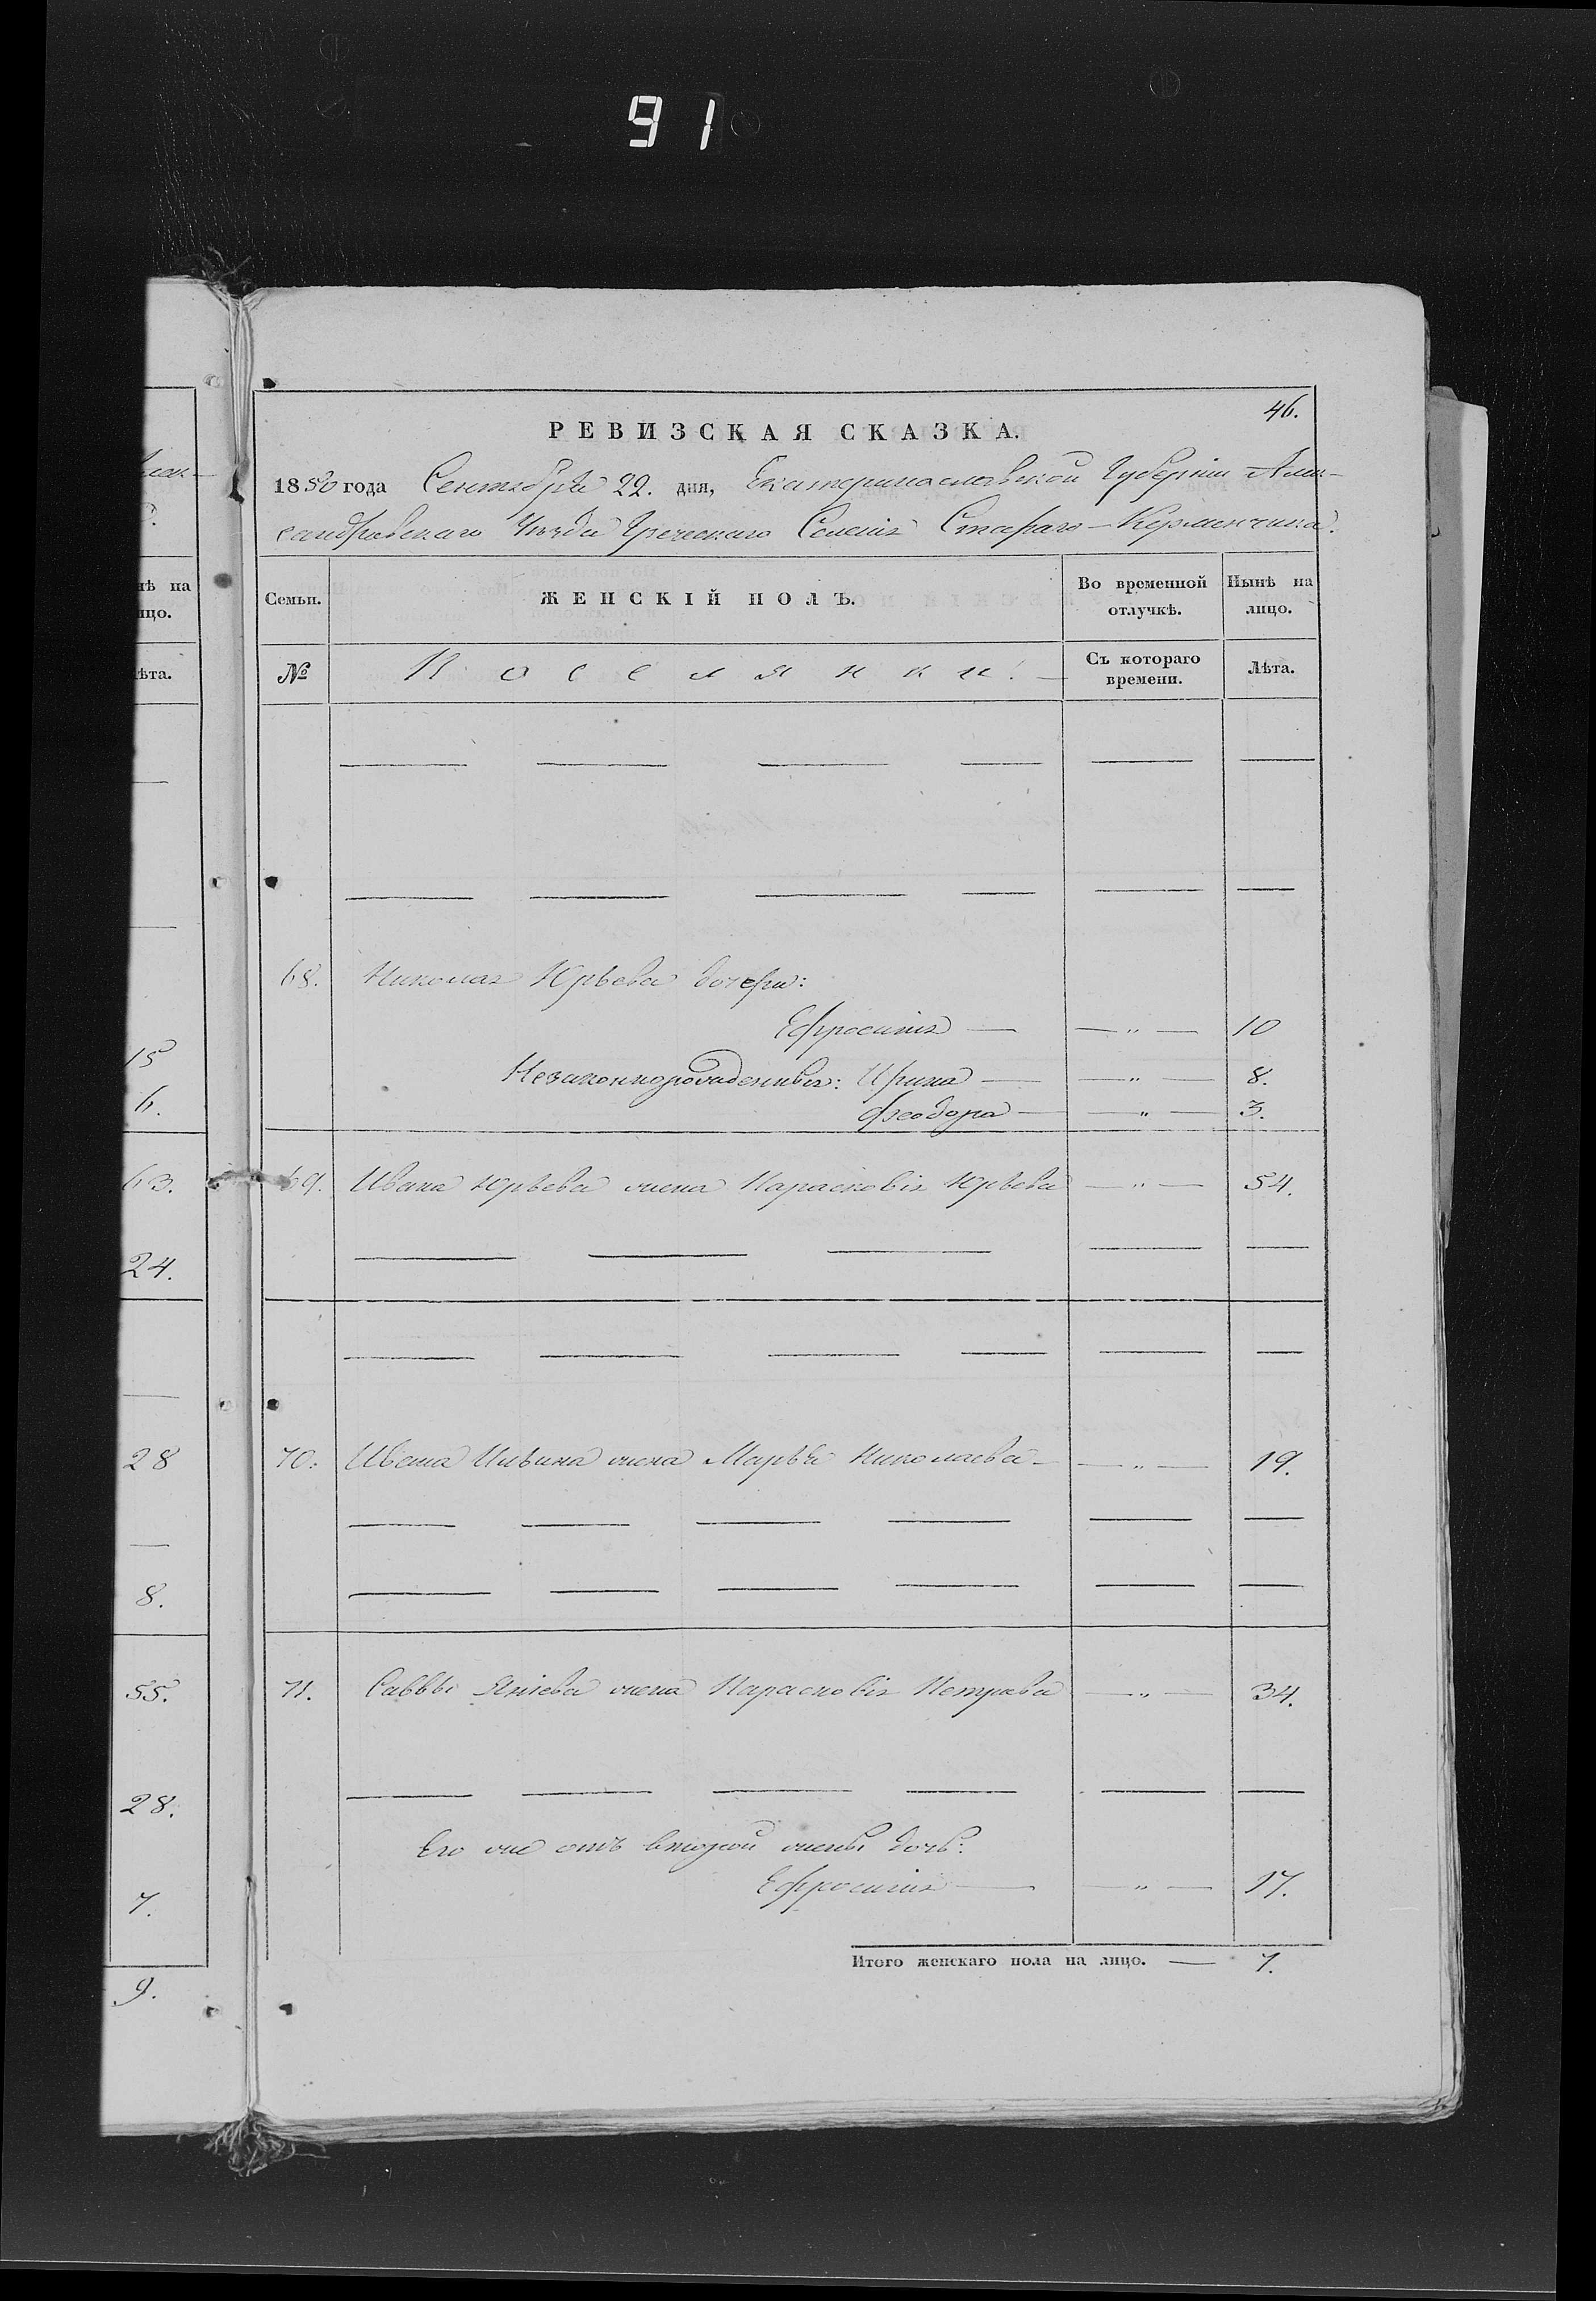 91
46.
РЕВИЗСКАЯ СКАЗКА.
1850 года Сентября 22. дня, Екатеринославской Губерніи Алек-
сандровскаго Уѣзда Греческаго Селенія Стараго-Керменчика.
Семьи. ЖЕНСКІЙ ПОЛЪ. Во временной отлучкѣ. Нынѣ на лицо.
№ Поселянки. Съ котораго времени. Лѣта.
68. Николая Юрьева дочери:
Ефросинія — „ — 10
Незаконнорожденныя: Ирина — „ — 8.
Феодора — „ — 3.
69. Ивана Юрьева жена Парасковія Юрьева — „ — 54.
70. Ивана Ильина жена Марья Николаева — „ — 19.
71. Саввы Яніева жена Парасковія Петрова — „ — 34.
Его же отъ второй жены дочь:
Ефросинія — „ — 17.
Итого женскаго пола на лицо. — 7.
нѣ на
ицо.
ѣта.
15
6.
63.
24.
28
8.
55.
28.
7.
9.